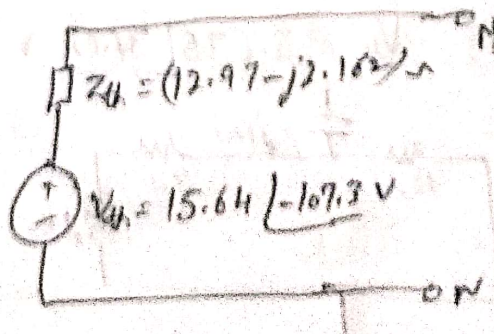 N
Zth = (12.97-j2.162)Ω
+
Vth = 15.64 ∠-107.3 V
-
N